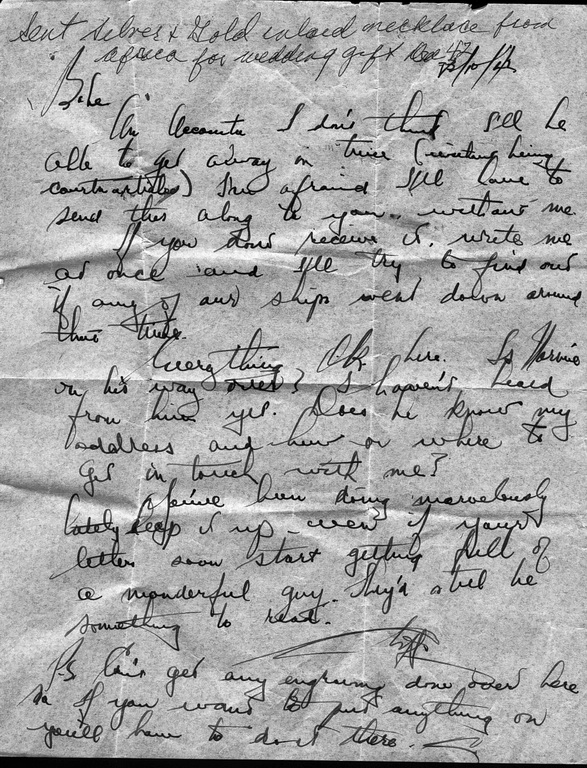 Sent Silver & Gold inlaid necklace from
africa for wedding gift
Babe
On Accounta I don't think I'll be
able to get away on time (involving being
court martialed) I'm afraid I'll have to
send this along to you without me
If you don't receive it, write me
at once and I'll try to find out
if any of our ships went down around
that time.
Everything Ok here. Is Harvie
on his way over? I haven't heard
from him yet. Does he know my
address and how or where to
get in touch with me?
You've been doing marvelously
lately keep it up even if your
letters soon start getting full of
a wonderful guy. They'd still be
something to read.
PS Can't get any engraving done over here
so if you want to put anything on
you'll have to do it there.